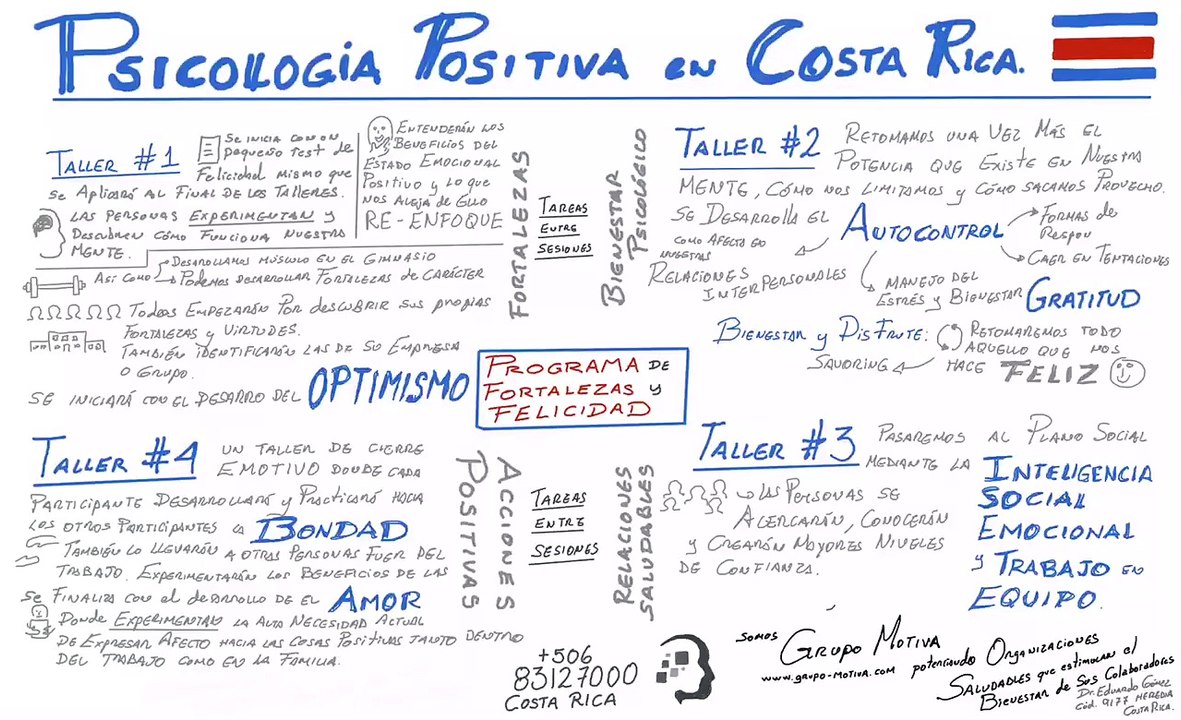 PSICOLOGIA POSITIVA en COSTA RICA.
TALLER #1
Se inicia con un
pequeño Test de
Felicidad mismo que
se Aplicará al Final de los Talleres.
Las personas EXPERIMENTAN y
Descubren cómo Funciona nuestra
MENTE.
Entenderán los
Beneficios del
Estado Emocional
Positivo y lo que
nos Aleja de Ello
RE-ENFOQUE
Desarrollamos músculo en el Gimnasio
Así como Podemos desarrollar Fortalezas de carácter
Todos Empezarán Por descubrir sus propias
Fortalezas y Virtudes.
También identificarán las de su Empresa
o Grupo.
Se iniciará con el desarro del OPTIMISMO
FORTALEZAS
TAREAS
ENTRE
SESIONES
BIENESTAR
PSICOLÓGICO
TALLER #2
Retomamos una Vez Más el
Potencia que Existe en Nuestra
MENTE, Cómo nos limitamos y Cómo sacamos Provecho.
Se Desarrolla el AUTOCONTROL
Formas de
Respon
Caer en Tentaciones
como Afecta en
nuestras
Relaciones
Interpersonales
Manejo del
Estrés y Bienestar GRATITUD
Bienestar y Disfrute:
Retomaremos todo
aquello que nos
hace FELIZ
Savoring
PROGRAMA DE
FORTALEZAS y
FELICIDAD
TALLER #4
UN TALLER DE CIERRE
EMOTIVO DONDE CADA
PARTICIPANTE Desarrollará y Practicará hacia
los otros Participantes la BONDAD
También lo llevarán a otras Personas Fuer del
TRABAJO. Experimentarán los Beneficios de las
Se Finaliza con el desarrollo de el AMOR
Donde Experimentan la Alta Necesidad Actual
de Expresar Afecto hacia las cosas Positivas tanto dentro
del Trabajo como en la Familia.
ACCIONES
POSITIVAS
TAREAS
ENTRE
SESIONES
RELACIONES
SALUDABLES
TALLER #3
Pasaremos al Plano Social
mediante la INTELIGENCIA
SOCIAL
EMOCIONAL
y TRABAJO en
EQUIPO.
las Personas se
Acercarán, Conocerán
y Crearán Mayores Niveles
de Confianza.
+506
83127000
COSTA RICA
SOMOS Grupo Motiva
www.grupo-motiva.com potenciando Organizaciones
Saludables que estimulan el
Bienestar de Sus Colaboradores
Dr. Eduardo Gómez
Cód. 9177 Heredia
Costa Rica.